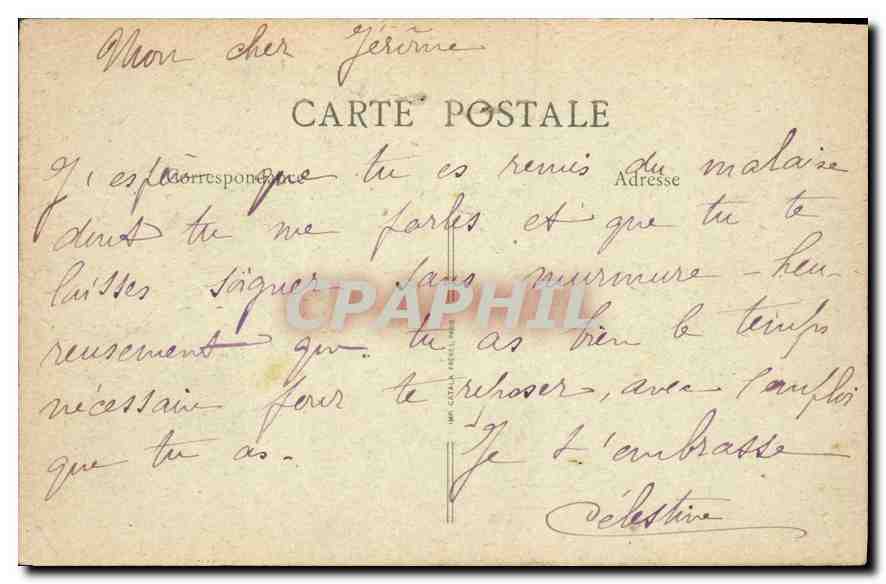 Mon cher Jérôme
CARTE POSTALE
Correspondance
Adresse
J'espère que tu es remis du malaise
dont tu me parles et que tu te
laisses soigner sans murmure - heu-
reusement que tu as bien le temps
nécessaire pour te reposer, avec l'emploi
que tu as.
Je t'embrasse
Célestine
CPAPHIL
IMP. CATALA FRÈRES, PARIS